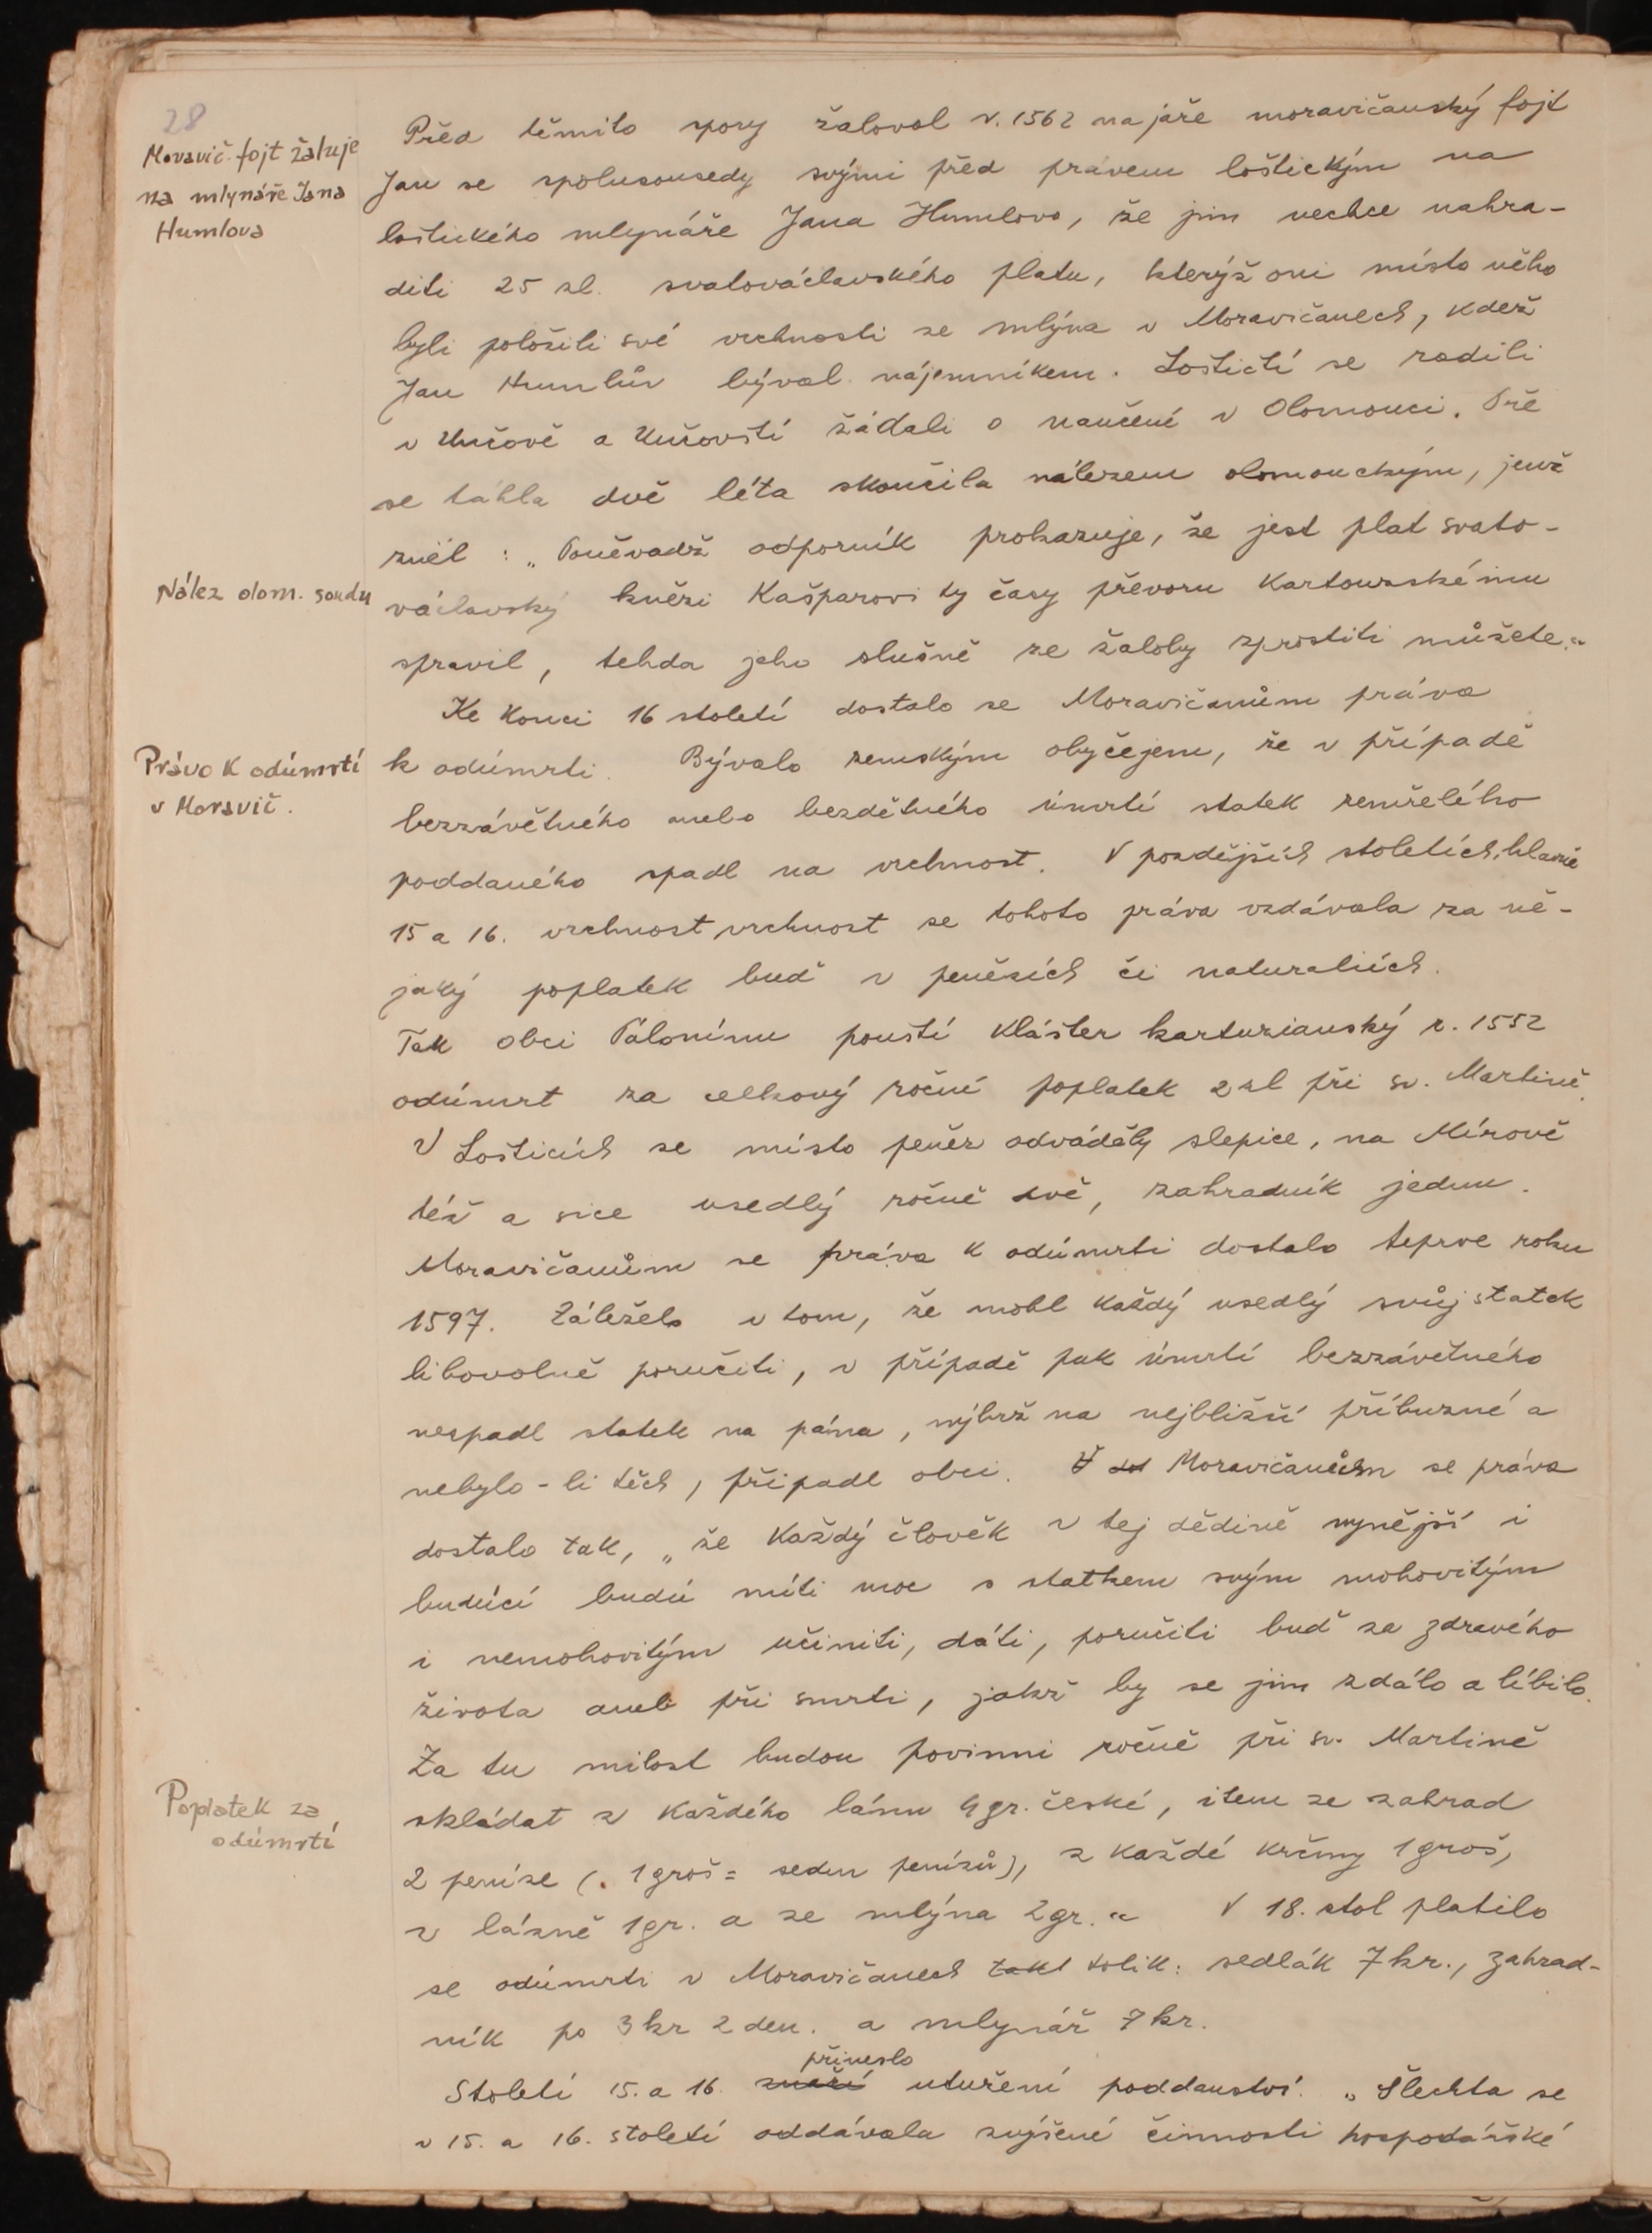 28
Moravič. fojt žaluje
na mlynáře Jana
Humlova
Před těmito spory žaloval r. 1562 na jaře moravičanský fojt
Jan se spolusousedy svými před právem loštickým na
loštického mlynáře Jana Humlova, že jim nechce nahra-
diti 25 zl. svatováclavského platu, kterýž oni místo něho
byli položili své vrchnosti ze mlýna v Moravičanech, kdež
Jan Humlův býval nájemníkem. Loštičtí se radili
v Uničově a Uničovští žádali o naučení v Olomouci. Pře
se táhla dvě léta skončila nálezem olomouckým, jenž
zněl : „Poněvadž odporník prokazuje, že jest plat svato-
Nález olom. soudu
václavský knězi Kašparovi ty časy převoru Kartouzskému
spravil, tehda jeho slušně ze žaloby zprostiti můžete.“
Ke konci 16 století dostalo se Moravičanům práva
Právo k odúmrtí
v Moravič.
k odúmrti. Bývalo zemským obyčejem, že v případě
bezzávětného anebo bezdětného úmrtí statek zemřelého
poddaného spadl na vrchnost. V pozdějších stoletích, hlavně
15 a 16. vrchnost vrchnost se tohoto práva vzdávala za ně-
jaký poplatek buď v penězích či naturaliích.
Tak obci Palonínu pouští klášter kartuziánský r. 1552
odúmrt za celkový roční poplatek 2 zl při sv. Martině.
V Lošticích se místo peněz odváděly slepice, na Mírově
též a sice usedlý ročně dvě, zahradník jednu.
Moravičanům se práva k odúmrti dostalo teprve roku
1597. Záleželo v tom, že mohl každý usedlý svůj statek
libovolně poručiti, v případě pak úmrtí bezzávětného
nespadl statek na pána, nýbrž na nejbližší příbuzné a
nebylo-li těch, připadl obci. V Moravičanům se práva
dostalo tak, „že každý člověk v tej dědině nynější i
budúcí budú míti moc s statkem svým mohovitým
i nemohovitým učiniti, dáti, poručiti buď za zdravého
života aneb při smrti, jakž by se jim zdálo a líbilo.
Za tu milost budou povinni ročně při sv. Martině
Poplatek za
odúmrtí
skládat z každého lánu 4 gr. české, item ze zahrad
2 peníze (. 1 groš = sedm penízů), z každé krčmy 1 groš,
z lázně 1 gr. a ze mlýna 2 gr.“ V 18. stol platilo
se odúmrti v Moravičanech takt tolik: sedlák 7 kr., zahrad-
ník po 3 kr 2 den. a mlynář 7 kr.
přineslo
Století 15. a 16. značí utužení poddanství. „Šlechta se
v 15. a 16. století oddávala zvýšené činnosti hospodářské